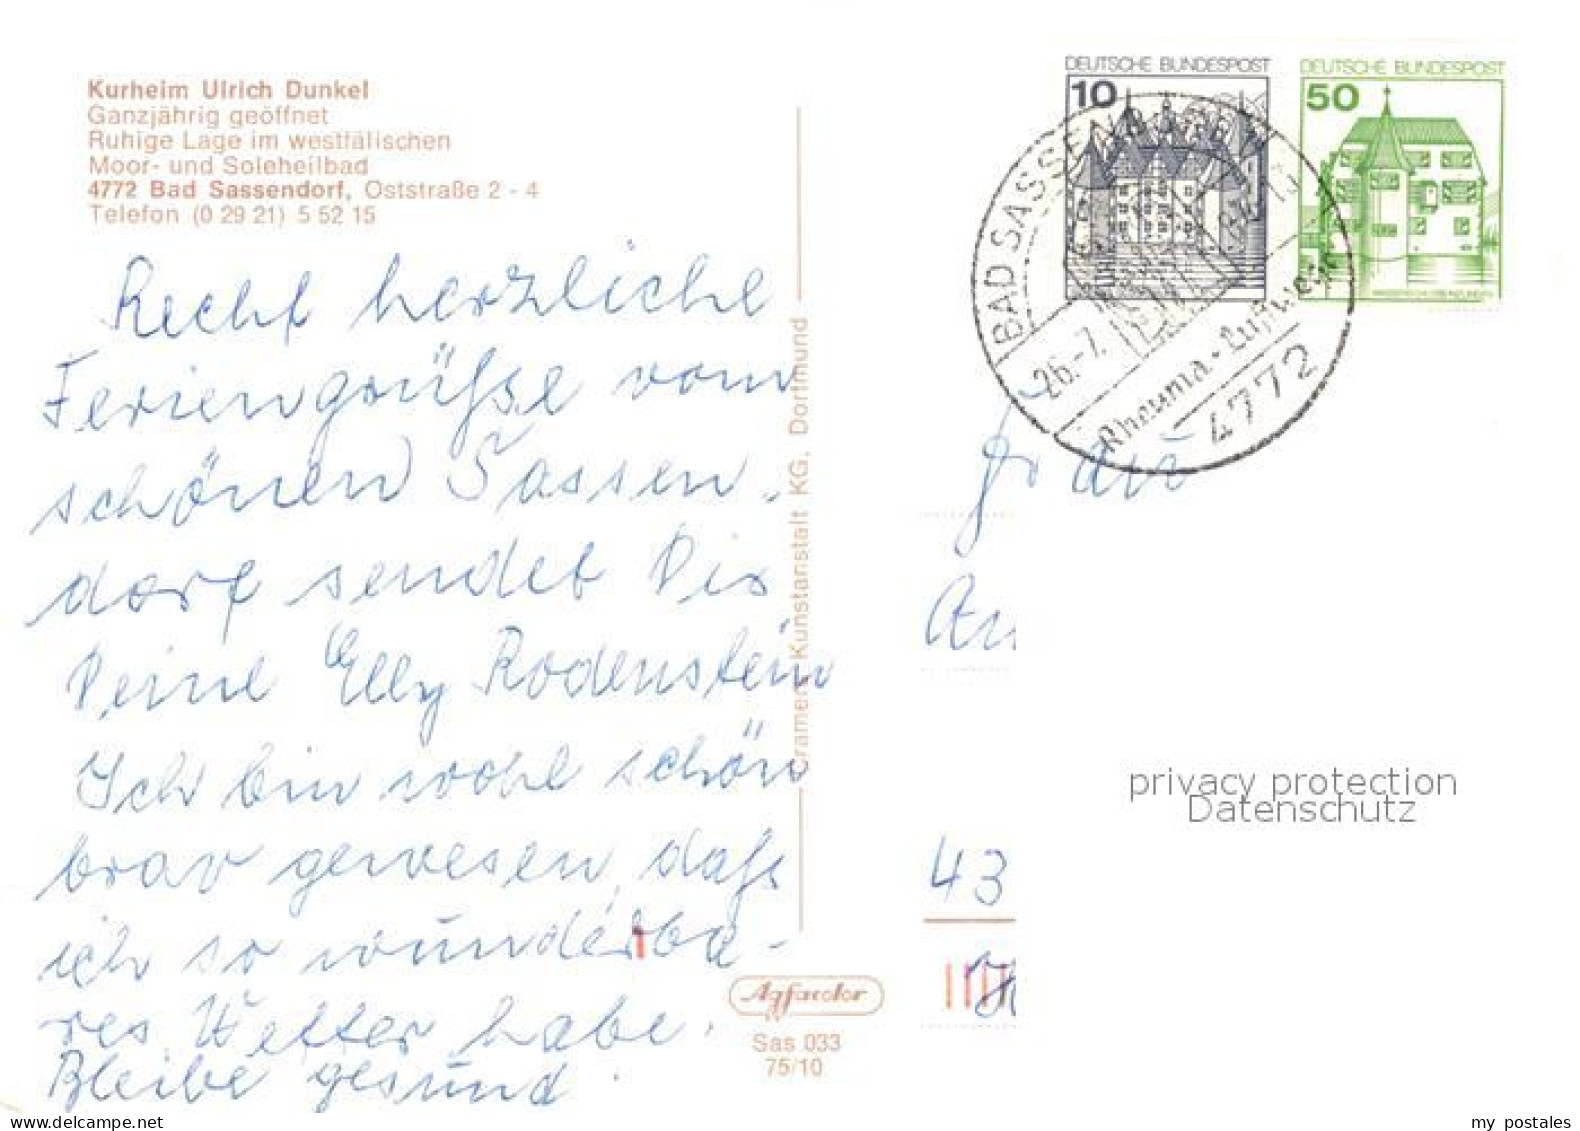 Kurheim Ulrich Dunkel
Ganzjährig geöffnet
Ruhige Lage im westfälischen
Moor- und Soleheilbad
4772 Bad Sassendorf, Oststraße 2 - 4
Telefon (0 29 21) 5 52 15
Recht herzliche
Feriengrüsse vom
schönen Sassen-
dorf sendet Dir
Deine Elly Rodenstein
Ich bin wohl schön
brav gewesen, daß
ich so wunderba-
res Wetter habe.
Bleibe gesund.
Cramers Kunstanstalt KG, Dortmund
Agfacolor
Sas 033
75/10
DEUTSCHE BUNDESPOST
10
DEUTSCHE BUNDESPOST
50
BAD SASSENDORF
26.-7.
Rheuma
4772
Frau
43
privacy protection
Datenschutz
my postales